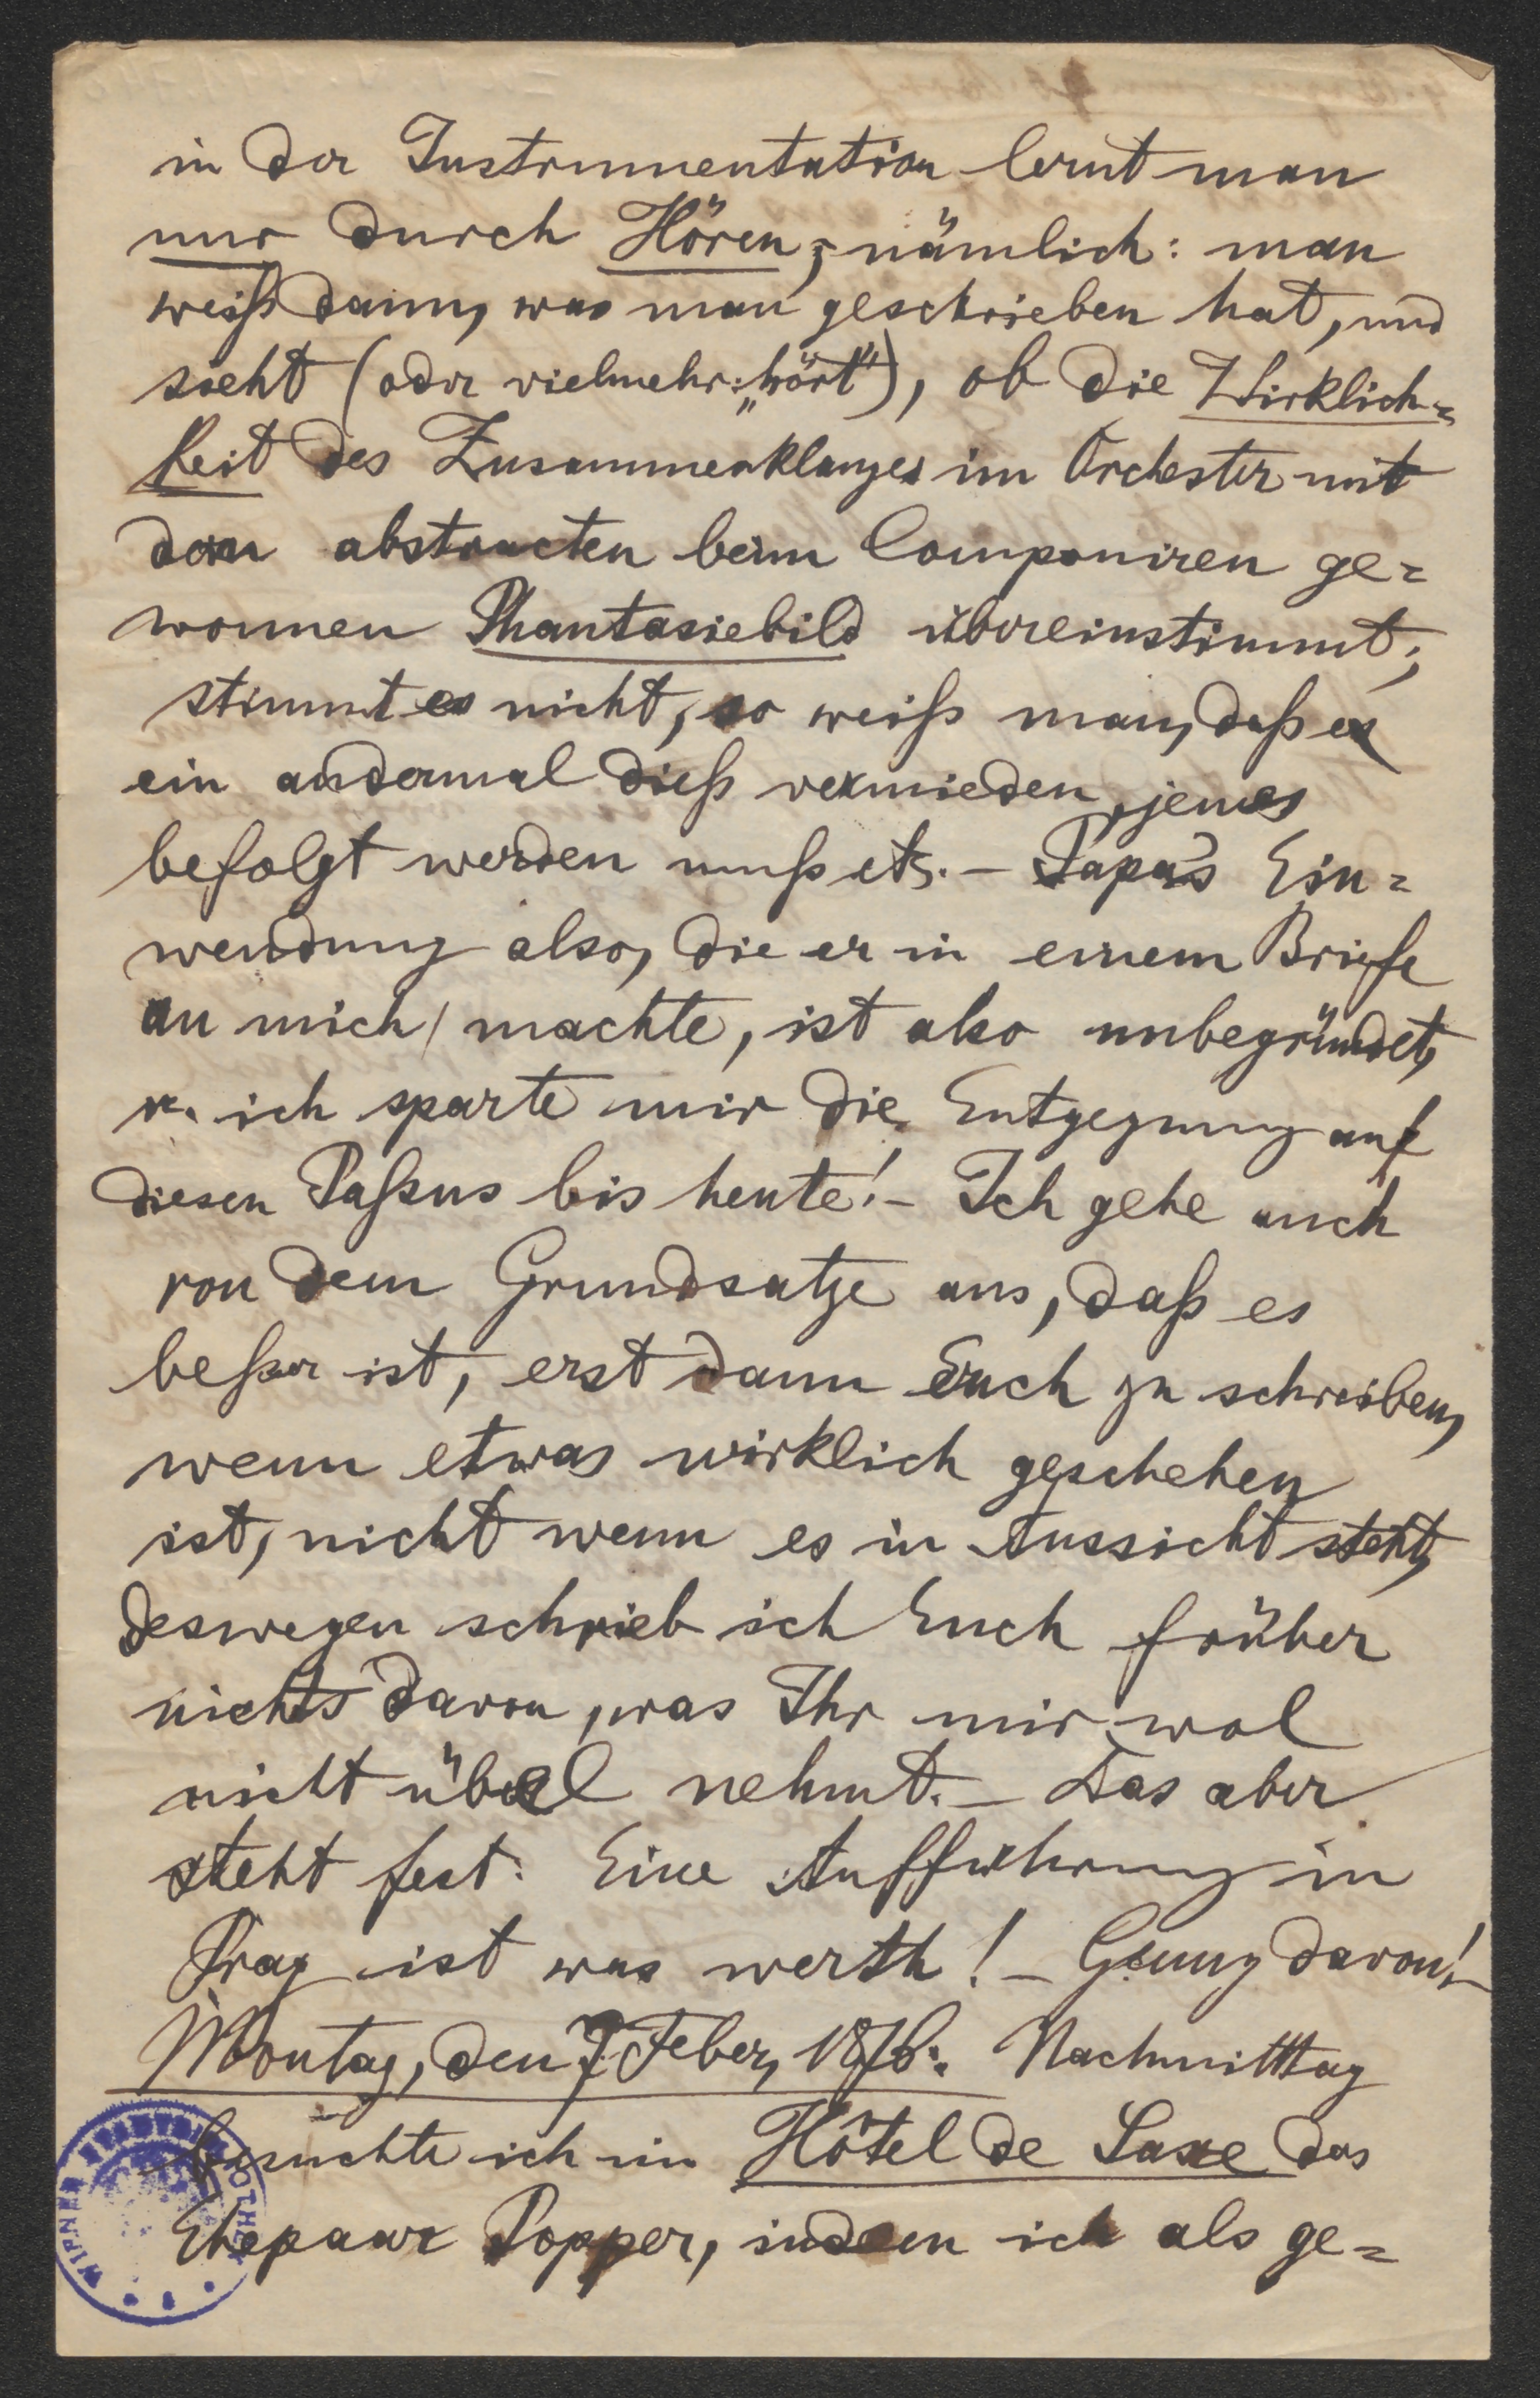 in der Instrumentation lernt man
nur durch Hören; nämlich: man
weiß dann, was man geschrieben hat, und
sieht (oder vielmehr: „hört“), ob die Wirklich=
keit des Zusammenklanges im Orchester mit
dem abstracten beim Componiren ge=
wonnen Phantasiebild übereinstimmt;
stimmt es nicht, so weiß man, daß es
ein andermal dieß vermieden, jenes
befolgt werden muß etz. – Papa's Ein=
wendung also, die er in einem Briefe
an mich machte, ist also unbegründet,
u. ich sparte mir die Entgegnung auf
diesen Paßus bis heute! – Ich gehe auch
von dem Grundsatze aus, daß es
beßer ist, erst dann Euch zu schreiben,
wenn etwas wirklich geschehen
ist, nicht wenn es in Aussicht steht,
deswegen schrieb ich Euch früher
nichts davon, was Ihr mir wol
nicht übel nehmt. – Das aber
steht fest: Eine Aufführung in
Prag ist was werth! – Genug davon! –
Montag, den 7. Feber, 1876: Nachmitttag
besuchte ich im Hôtel de Saxe das
Ehepaar Popper, indem ich als ge=